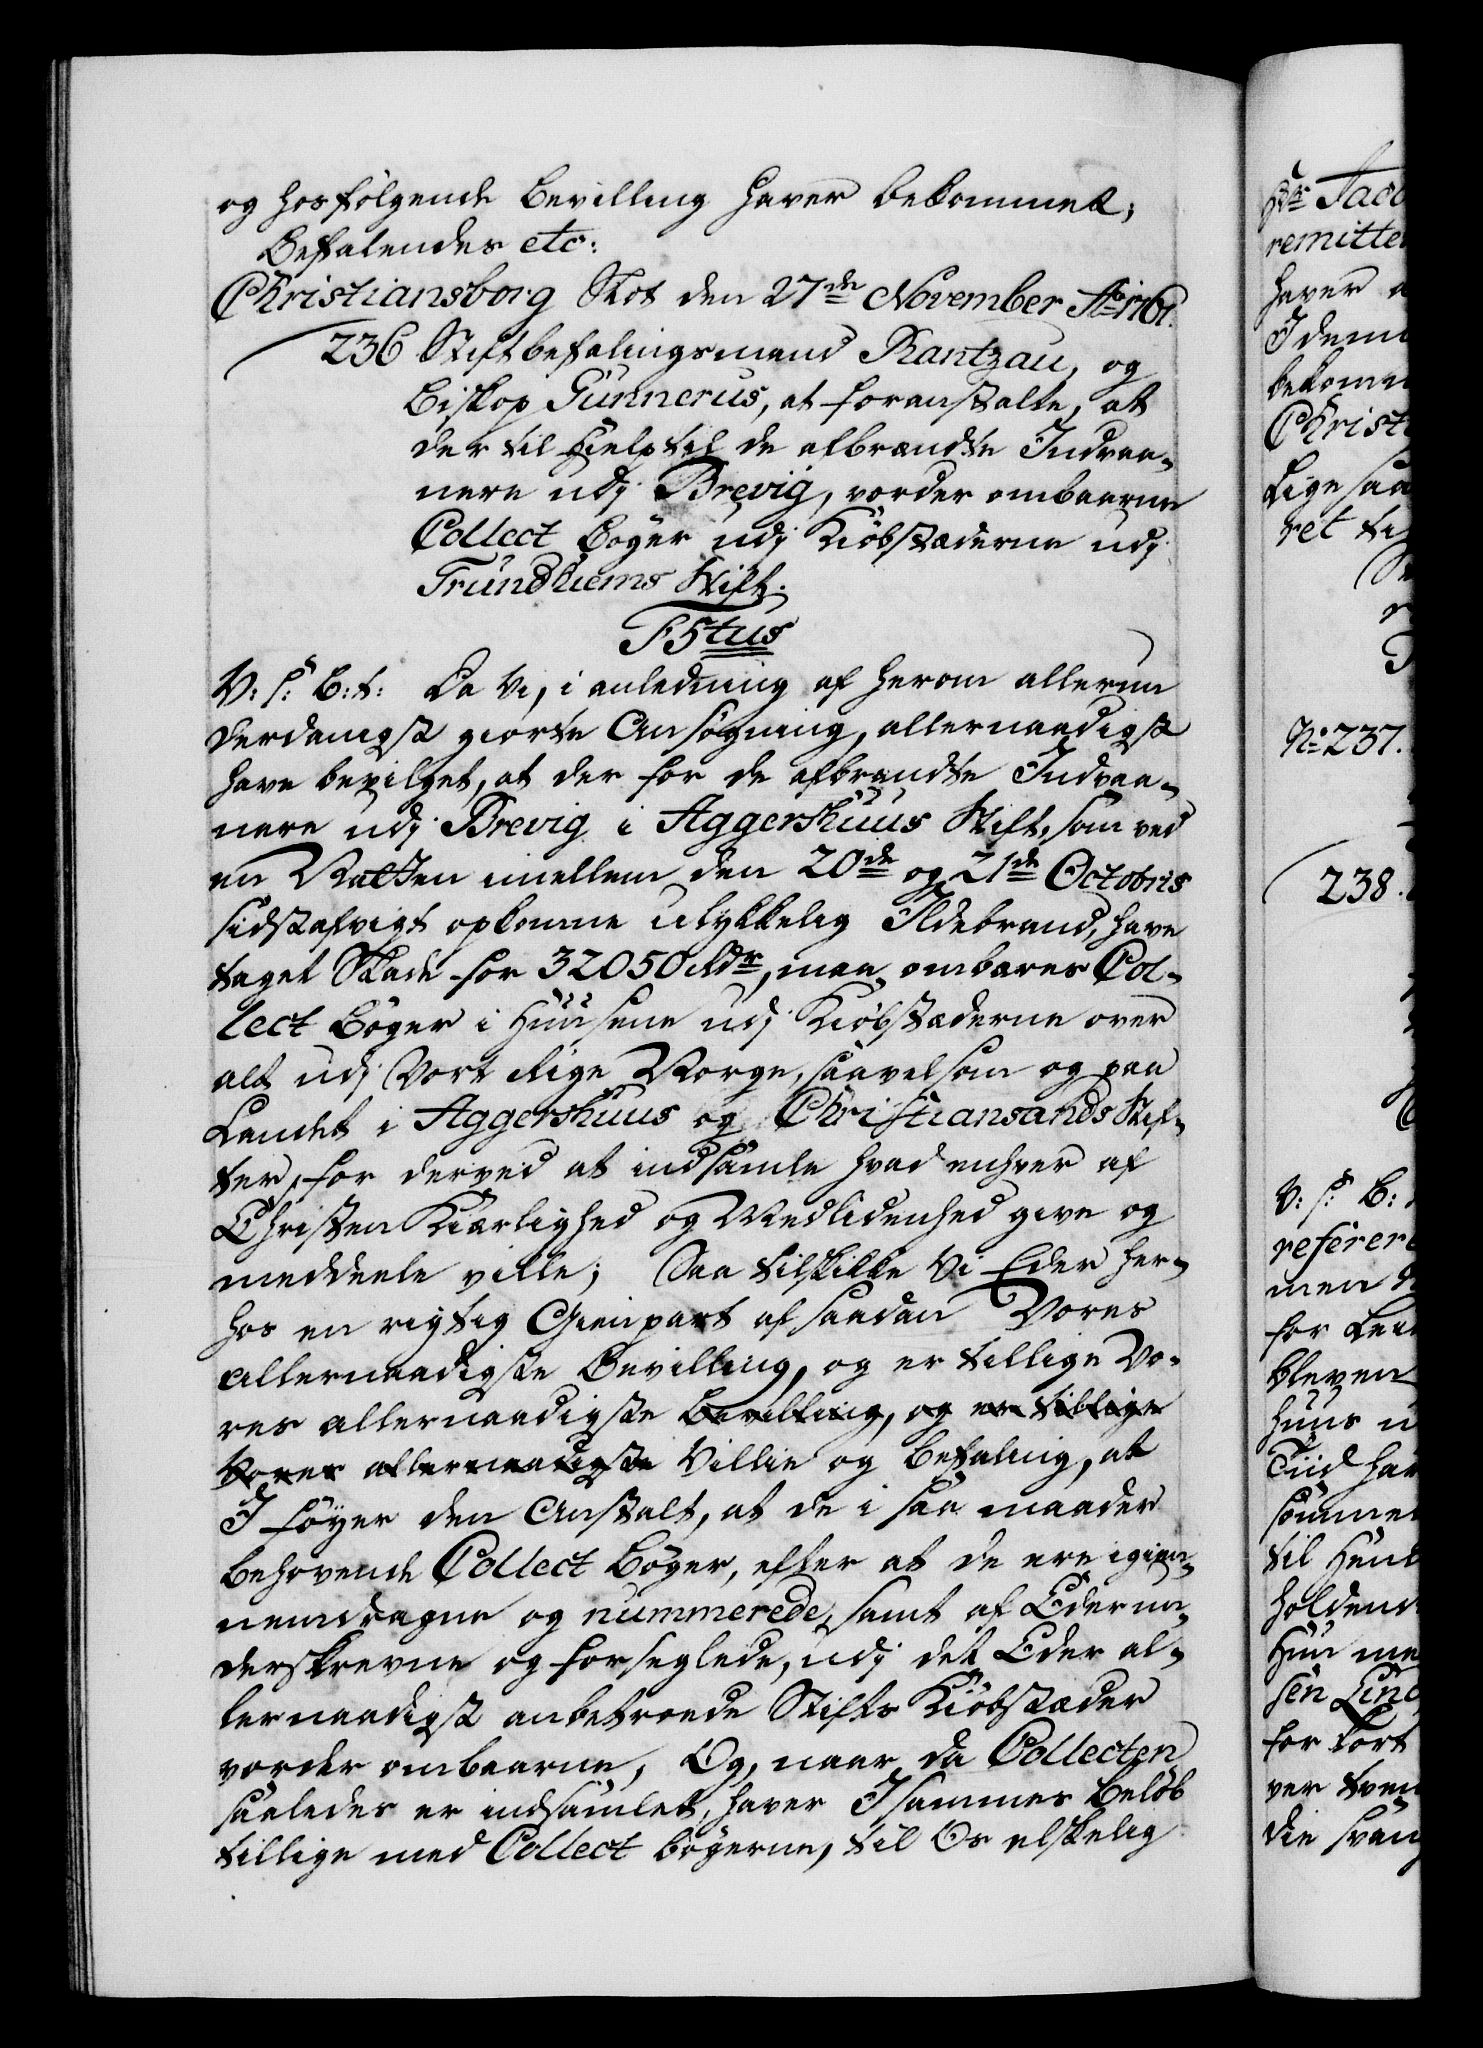 og hosfølgende Bevilling haver bekommet,
Befalendes etc:
Christiansborg Slot den 27de November Ao 1761.
236 Stiftbefalingsmand Rantzau, og
Biskop Gunnerus, at foranstalte, at
der til Hielp til de afbrændte Indvaa-
nere udj Brevig, vorder ombaarne
Collect Bøger udj Kiøbstæderne udj
Trundhiems Stift.
F5tus
V: s: G: t: Da Vi, i anledning af herom allerun
derdanigst giorte Ansøgning, allernaadigst
have bevilget, at der for de afbrændte Indvaa-
nere udj Brevig i Aggershuus Stift, som ved
en Natten imellem den 20de og 21de Octobris
sidstafvigt opkomne ulykkelig Ildebrand, have
taget Skade for 32050 Rdr, maa ombæres Col-
lect Bøger i Huusene udj Kiøbstæderne over
alt udj Vort Rige Norge, saavelsom og paa
Landet i Aggershuus og Christiansands Stif-
ter, for derved at indsamle hvad enhver af
Christen Kiærlighed og Medlidenhed give og
meddeele ville; Saa tilskikke Vi Eder her-
hos en rigtig Gienpart af saadan Vores
allernaadigste Bevilling, og er tillige Vo-
res allernaadigste Bevilling, og er tillige
Vores allernaadigste Villie og Befaling, at
I føyer den Anstalt, at de i saa maader
behøvende Collect Bøger, efter at de ere igien-
nemdragne og nummerede, samt af Eder un-
derskrevne og forseglede, udj det Eder al-
lernaadigst anbetroede Stifts Kiøbstæder
vorder ombaarne, Og, naar da Collecten
saaledes er indsamlet, haver I sammes Beløb
tillige med Collect bøgerne, til Os elskelig
Hr Jaco
remitte
haver
I dem
bekom
Christ
Lige saa
ret ti
No 237.
238.
V: s: G:
referere
men
for
bleven
huus u
Tiid har
sømme
til
holdend
Hun me
sen Lind
for kort
ver tven
die svan